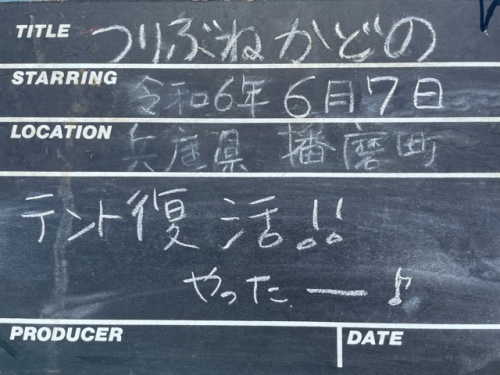 TITLE つりぶねかどの
STARRING 令和6年 6月7日
LOCATION 兵庫県 播磨町
テント復活!!
やったー♪
PRODUCER DATE